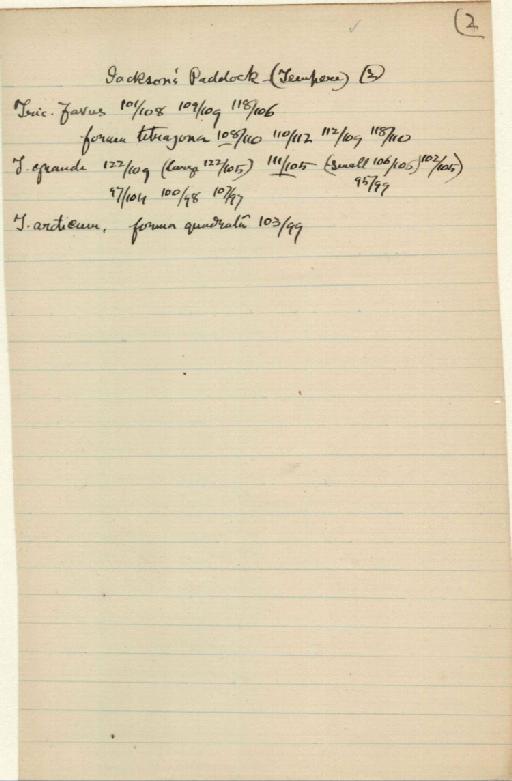 (2
Jackson's Paddock (Tempere) (3)
Tric. favus 101/108 109/109 118/106
forma tetragona 108/110 110/112 112/109 118/110
T. grande 122/109 (larg 122/105) 111/105 (small 106/105) 102/105)
97/104 100/98 107/97 95/99
T. arcticum, forma quadrata 103/99